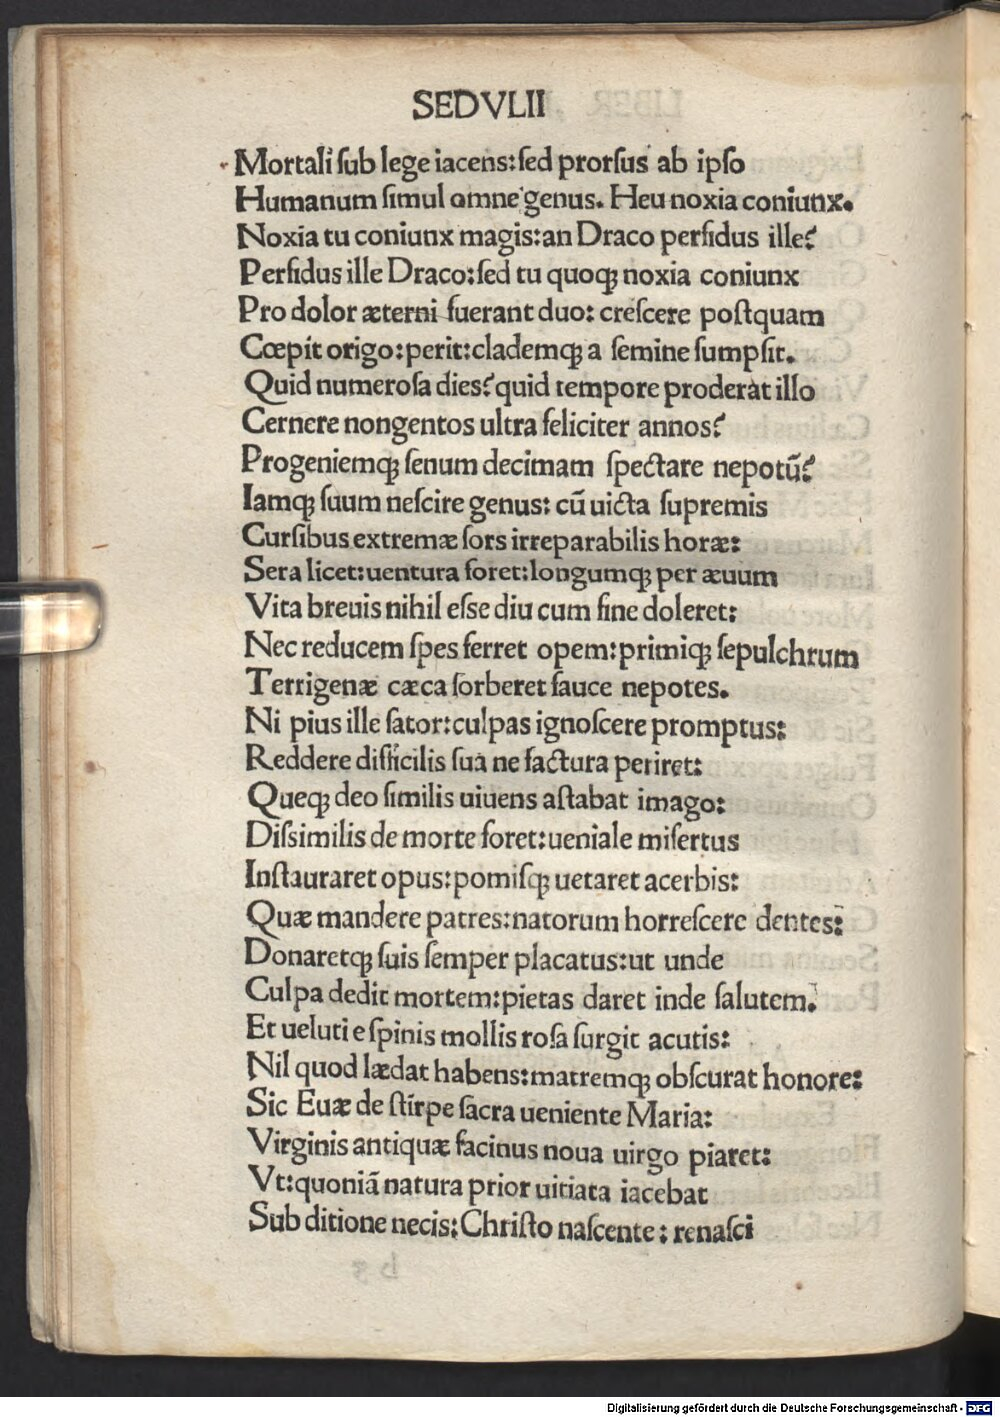 SEDVLII
Mortali ſub lege iacens:ſed prorſus ab ipſo
Humanum ſimul omne genus. Heu noxia coniunx.
Noxia tu coniunx magis:an Draco perfidus ille?
Perfidus ille Draco:ſed tu quoqꝫ noxia coniunx
Pro dolor æterni fuerant duo: creſcere poſtquam
Cœpit origo:perit:clademqꝫ a ſemine ſumpſit.
Quid numeroſa dies?quid tempore proderat illo
Cernere nongentos ultra feliciter annos?
Progeniemqꝫ ſenum decimam ſpectare nepotū?
Iamqꝫ ſuum neſcire genus: cū uicta ſupremis
Curſibus extremæ ſors irreparabilis horæ:
Sera licet:uentura foret:longumqꝫ per æuum
Vita breuis nihil eſſe diu cum fine doleret:
Nec reducem ſpes ferret opem:primiqꝫ ſepulchrum
Terrigenæ cæca ſorberet fauce nepotes.
Ni pius ille ſator:culpas ignoſcere promptus:
Reddere difficilis ſua ne factura periret:
Queqꝫ deo ſimilis uiuens aſtabat imago:
Diſsimilis de morte foret:ueniale miſertus
Inſtauraret opus:pomiſqꝫ uetaret acerbis:
Quæ mandere patres:natorum horreſcere dentes:
Donaretqꝫ ſuis ſemper placatus:ut unde
Culpa dedit mortem:pietas daret inde ſalutem.
Et ueluti e ſpinis mollis roſa ſurgit acutis:
Nil quod lædat habens:matremqꝫ obſcurat honore:
Sic Euæ de ſtirpe ſacra ueniente Maria:
Virginis antiquæ facinus noua uirgo piaret:
Vt:quoniā natura prior uitiata iacebat
Sub ditione necis:Chriſto naſcente: renaſci
Digitalisierung gefördert durch die Deutsche Forschungsgemeinschaft - DFG